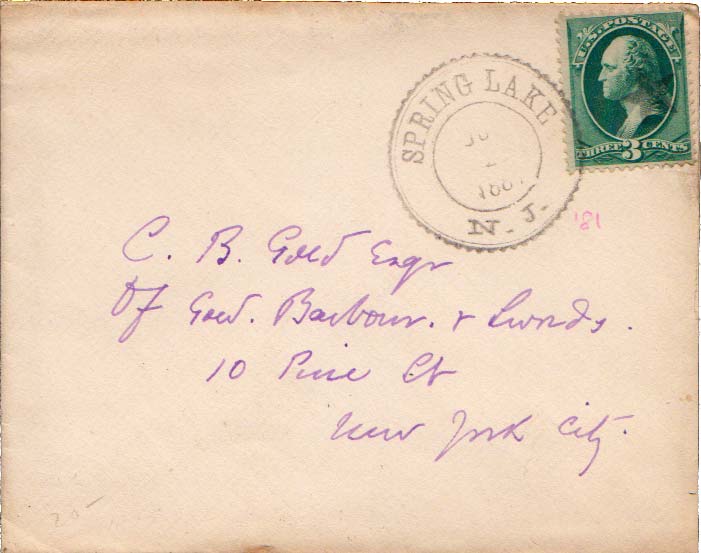 U.S. POSTAGE
THREE 3 CENTS
SPRING LAKE
N. J.
'81
C. B. Gold Esqr
Of Gold. Barbour. &
10 Pine St
New York City.
20-